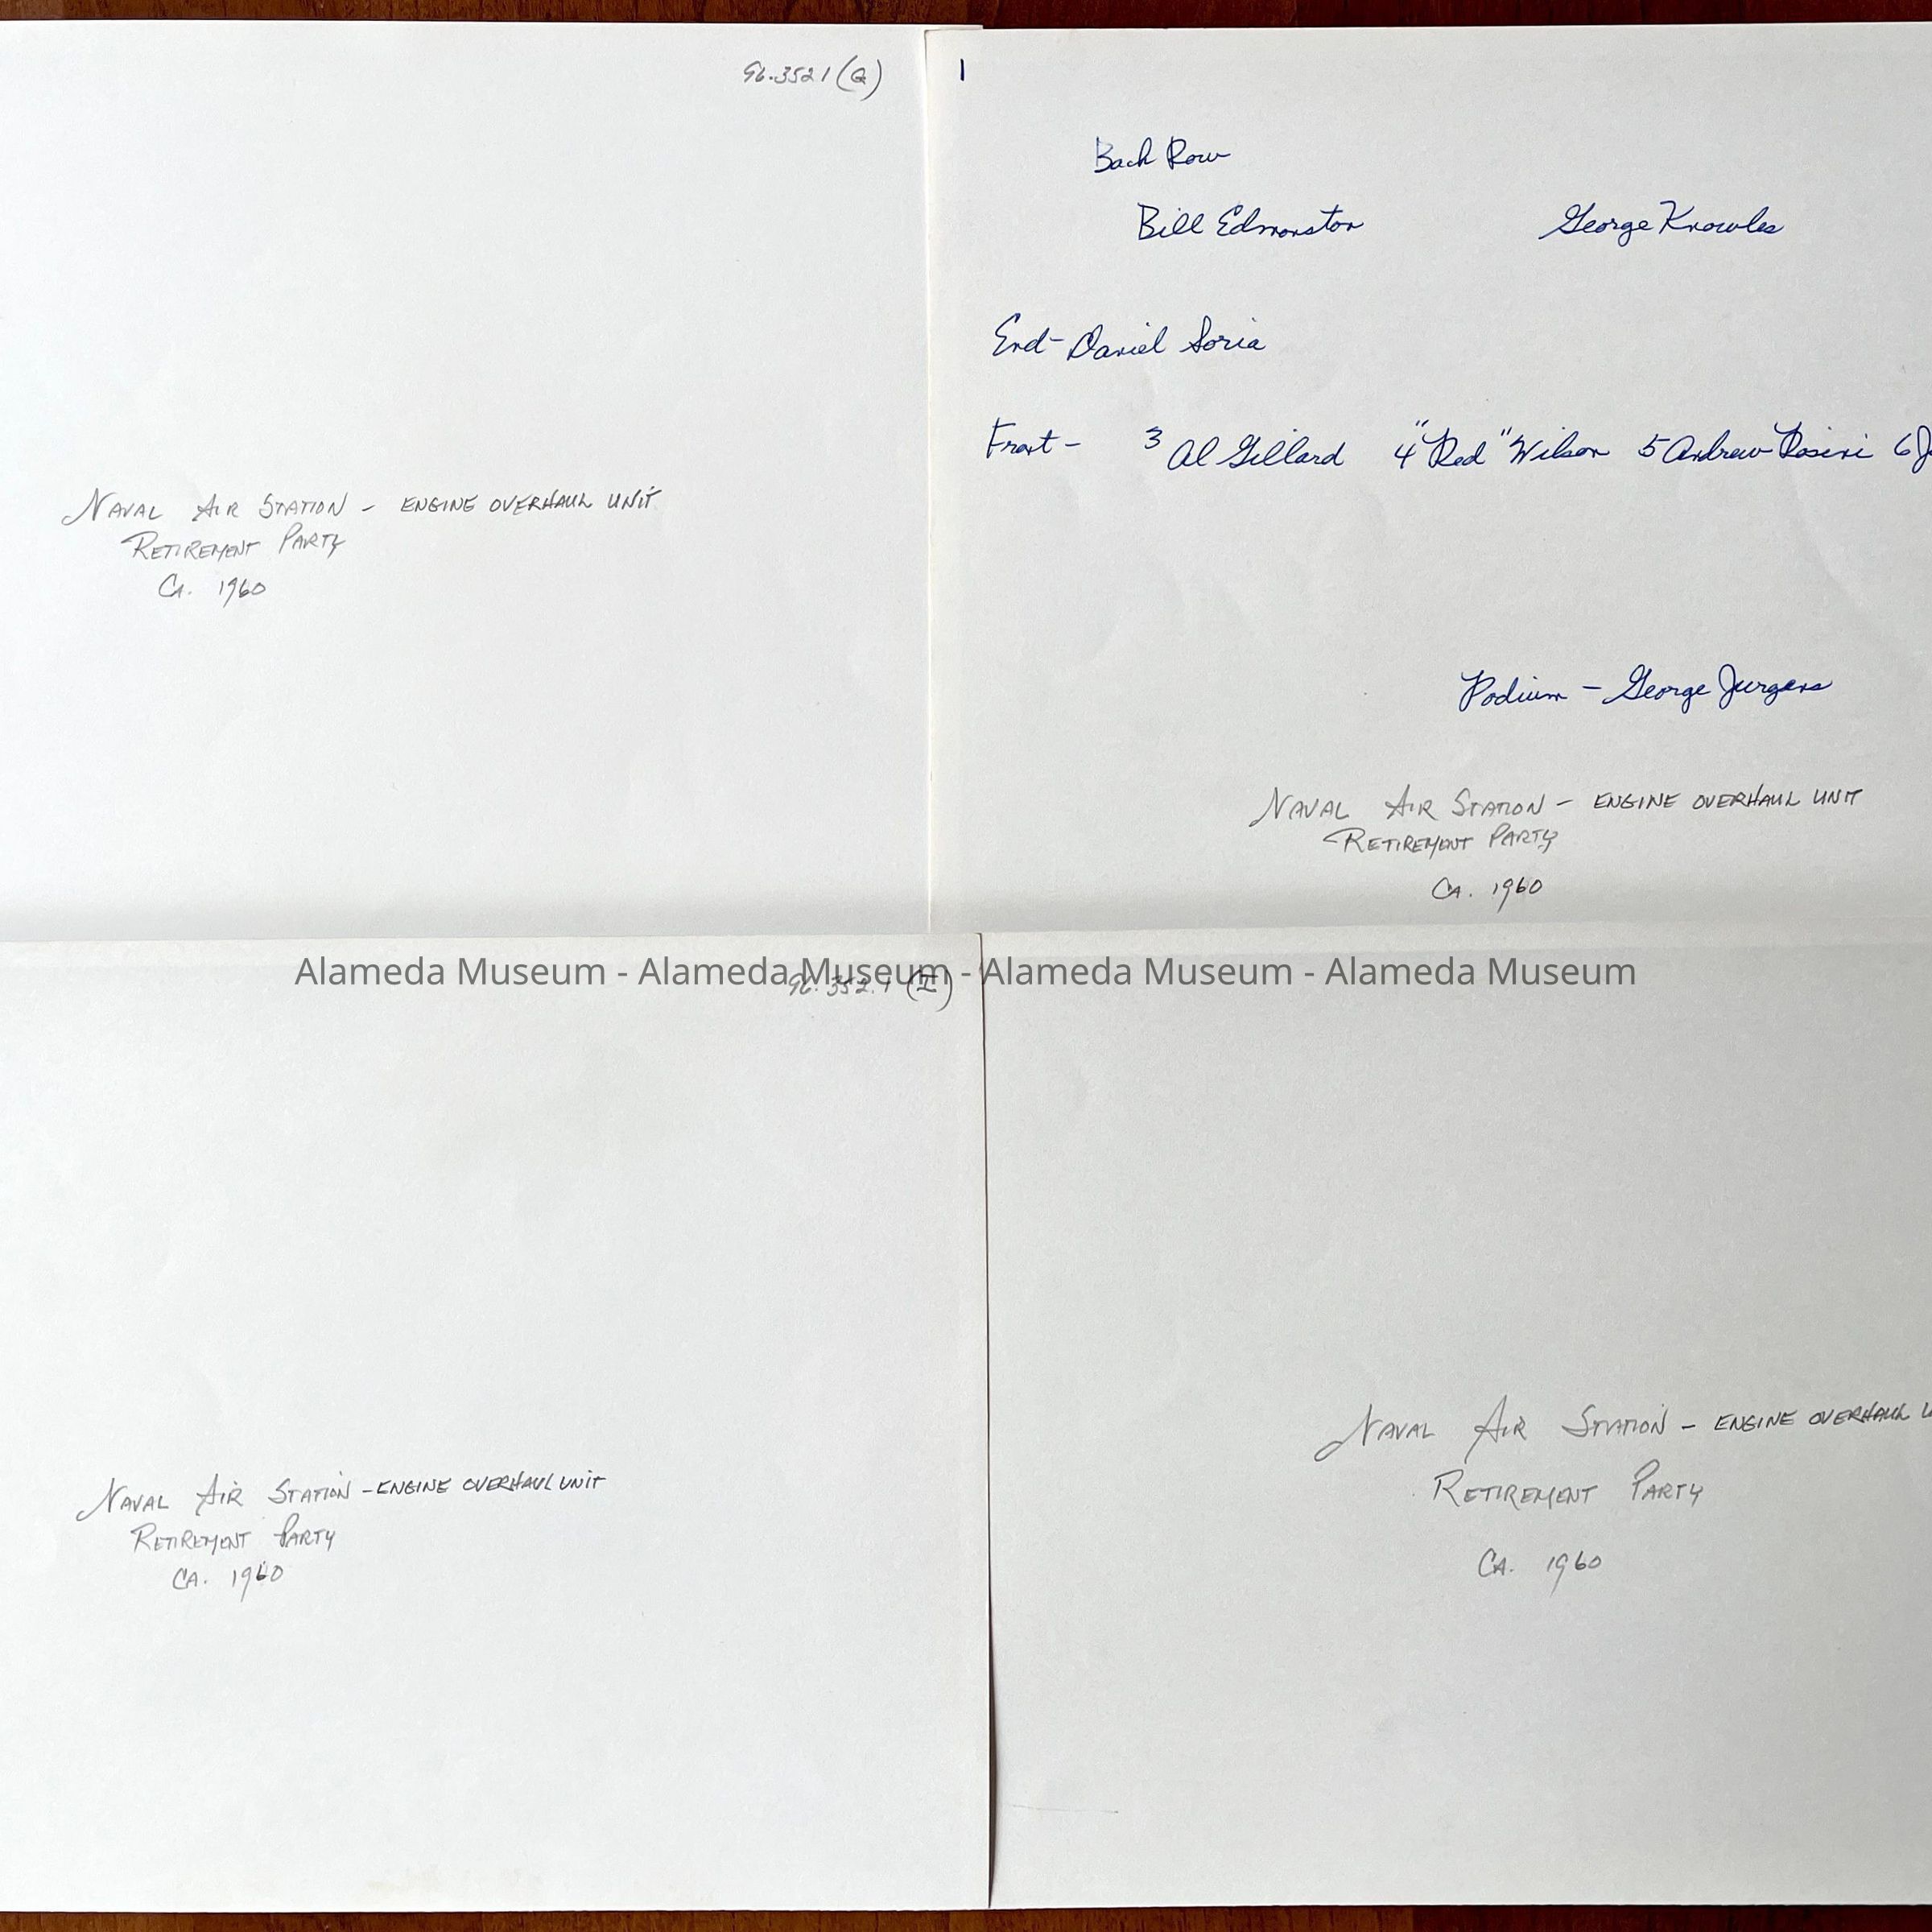 96.352.1 (Q)
NAVAL AIR STATION - ENGINE OVERHAUL UNIT
RETIREMENT PARTY
CA. 1960
1
Back Row
Bill Edmonston George Knowles
End- Daniel Soria
Front- 3 Al Gillard 4 "Red" Wilson 5 Andrew Rosini 6
Podium - George Jurgens
NAVAL AIR STATION - ENGINE OVERHAUL UNIT
RETIREMENT PARTY
CA. 1960
Alameda Museum - Alameda Museum - Alameda Museum - Alameda Museum
96.352.1 (I)
NAVAL AIR STATION - ENGINE OVERHAUL UNIT
RETIREMENT PARTY
CA. 1960
NAVAL AIR STATION - ENGINE OVERHAUL
RETIREMENT PARTY
CA. 1960